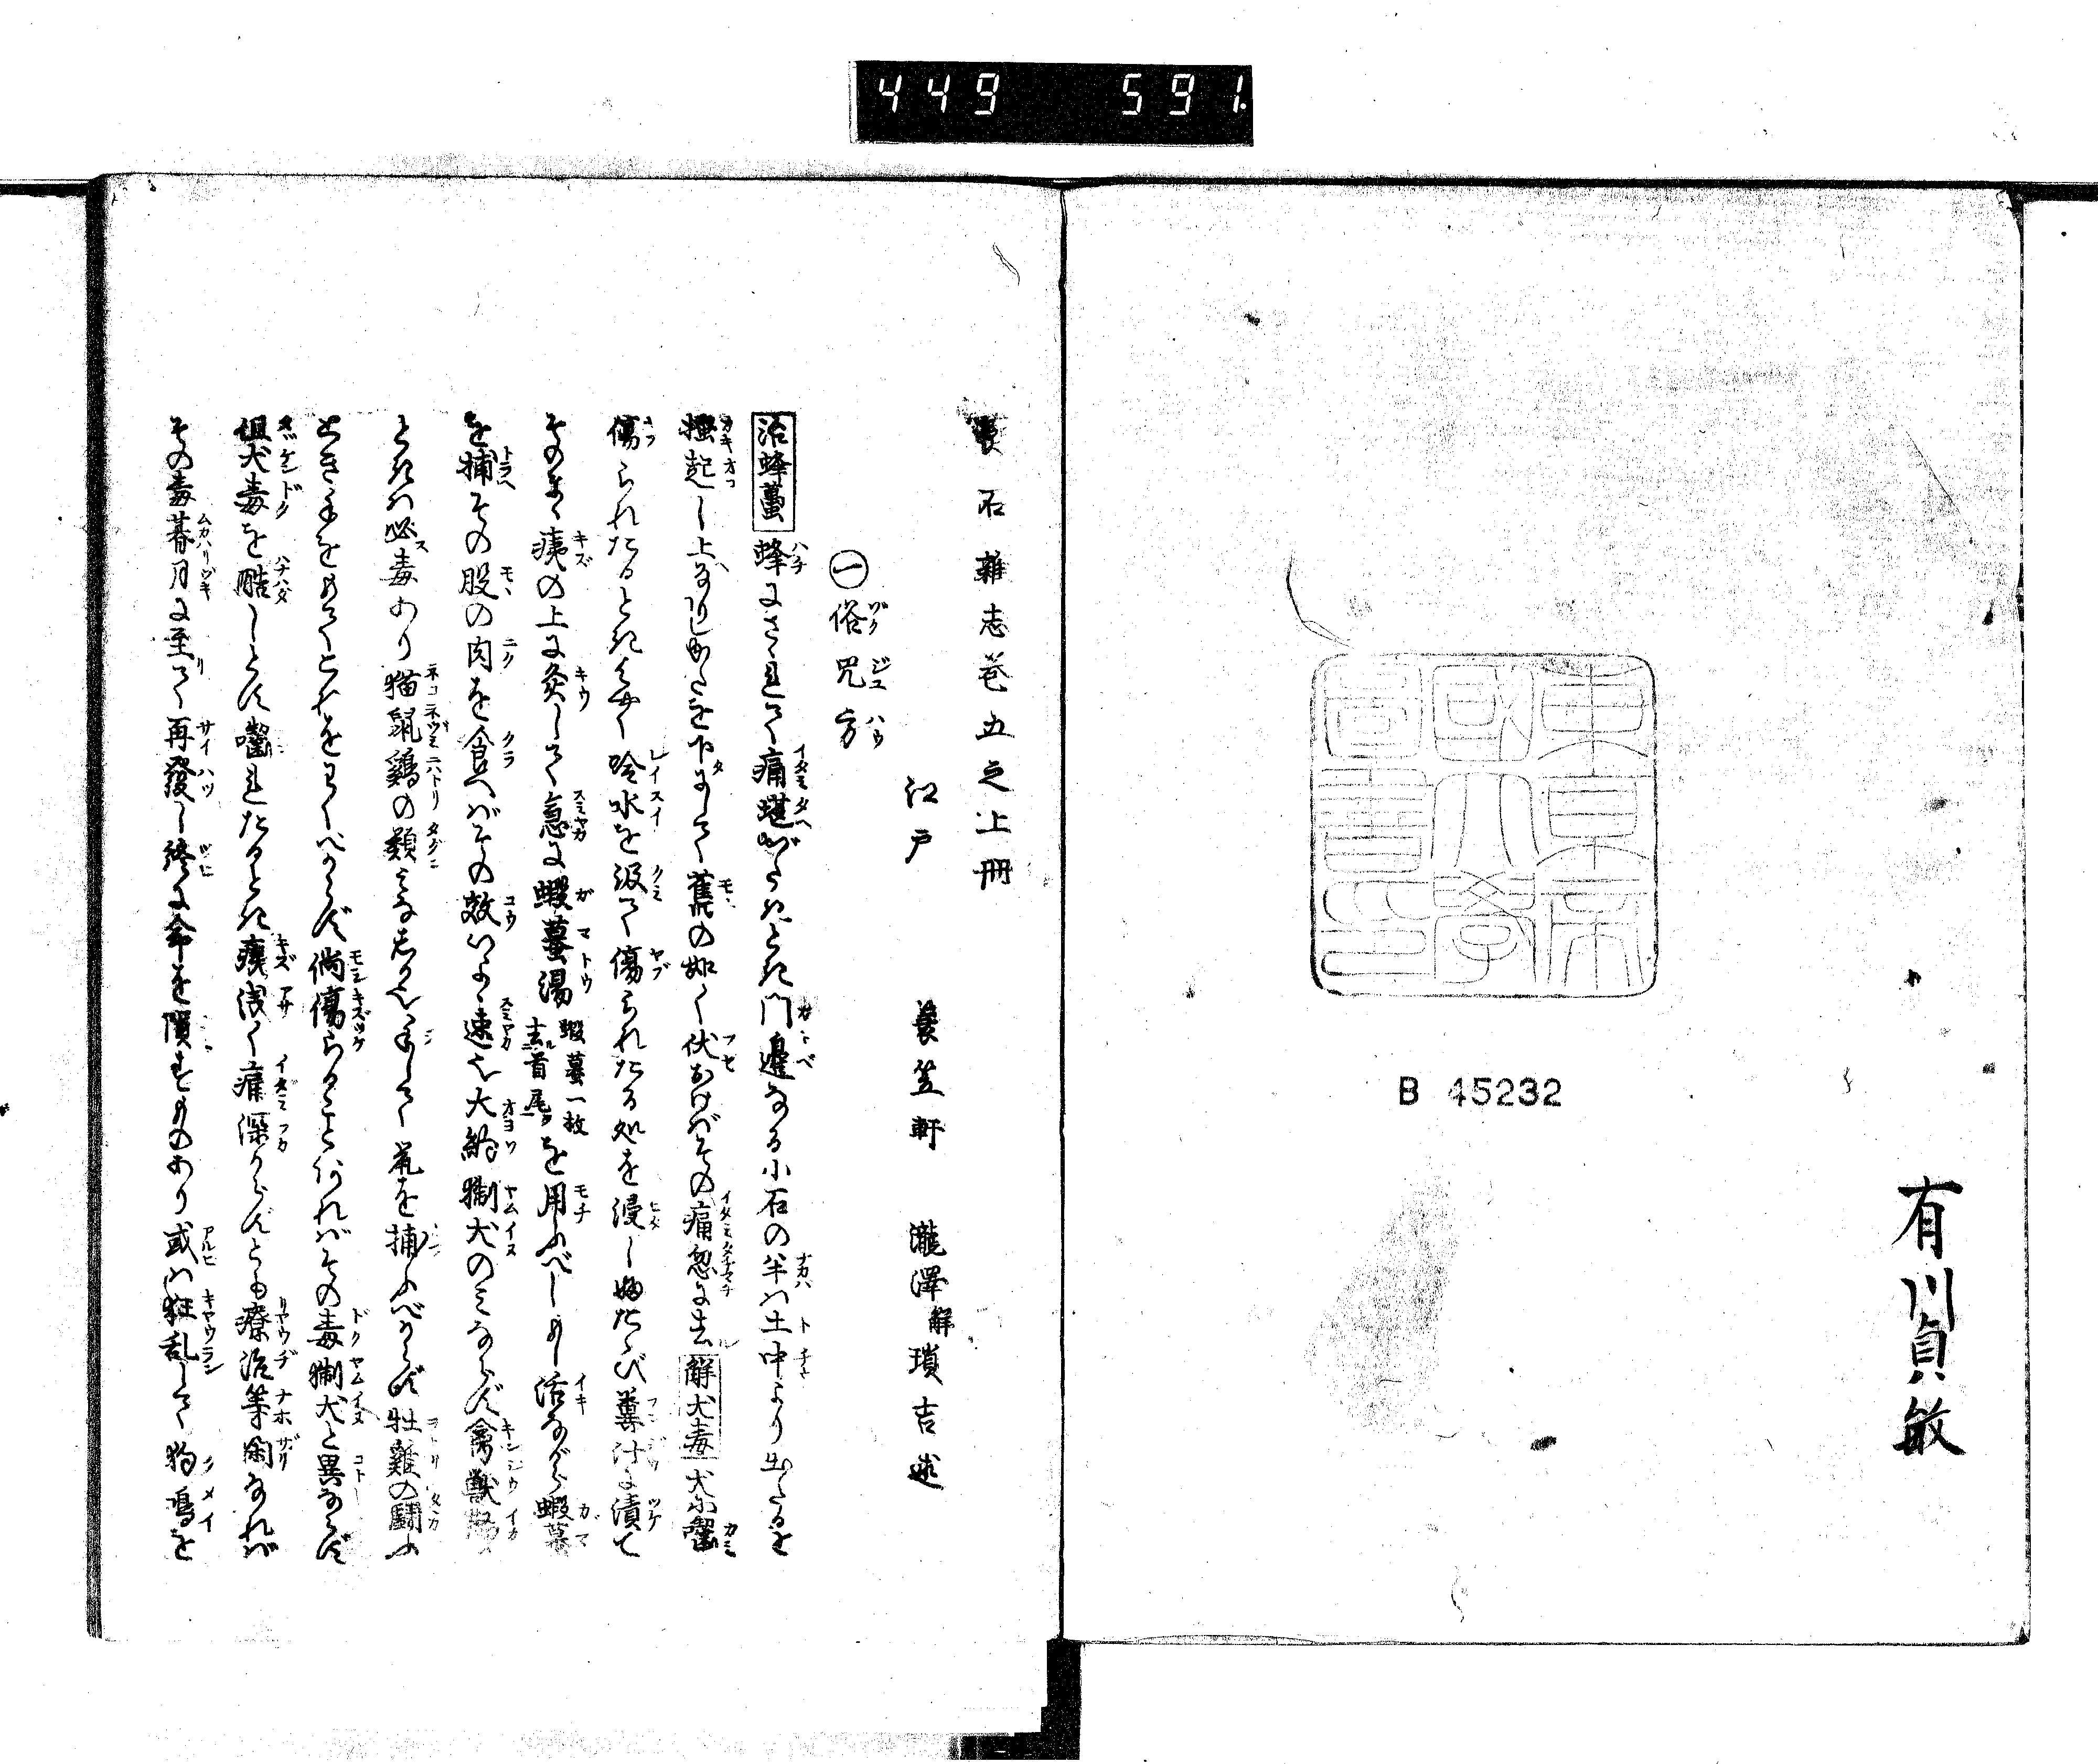 449 591.
東京帝
國大學
圖書印
B 45232
有川貞敏
石雜志巻五之上冊
江戸 蓑笠軒 瀧澤解瑣吉述
㊀俗咒方
治蜂蠆 蜂にさゝれて痛堪がたきとき門邊なる小石の半は土中より出たるを
起し上なりしかたを下にして舊の如く伏おけばその痛忽に去 解犬毒 犬に囓
傷られたるときはやく冷水を汲て傷られたる処を浸しふたゝび糞汁に漬て
そのまゝ痍の上に灸して急に蝦蟇湯 蝦蟇一枚去首尾 を用ふべしもし活ながら蝦蟇
を捕その股の肉を食へばその效いよゝ速也大約猘犬のみならず禽獸怒
ときは必毒あり猫鼠鷄の類みなしか也手して鼠を捕ふべからず牡雞の鬪ふ
とき手をもてこれをわくべからず倘傷らるゝことあればその毒猘犬と異ならず
犬毒を酷しとす囓れたるとき痍淺く痛深からずとも療治等閑なれば
その毒暮月に至りて再發し終に命を隕すものあり或は狂乱して狗鳴を